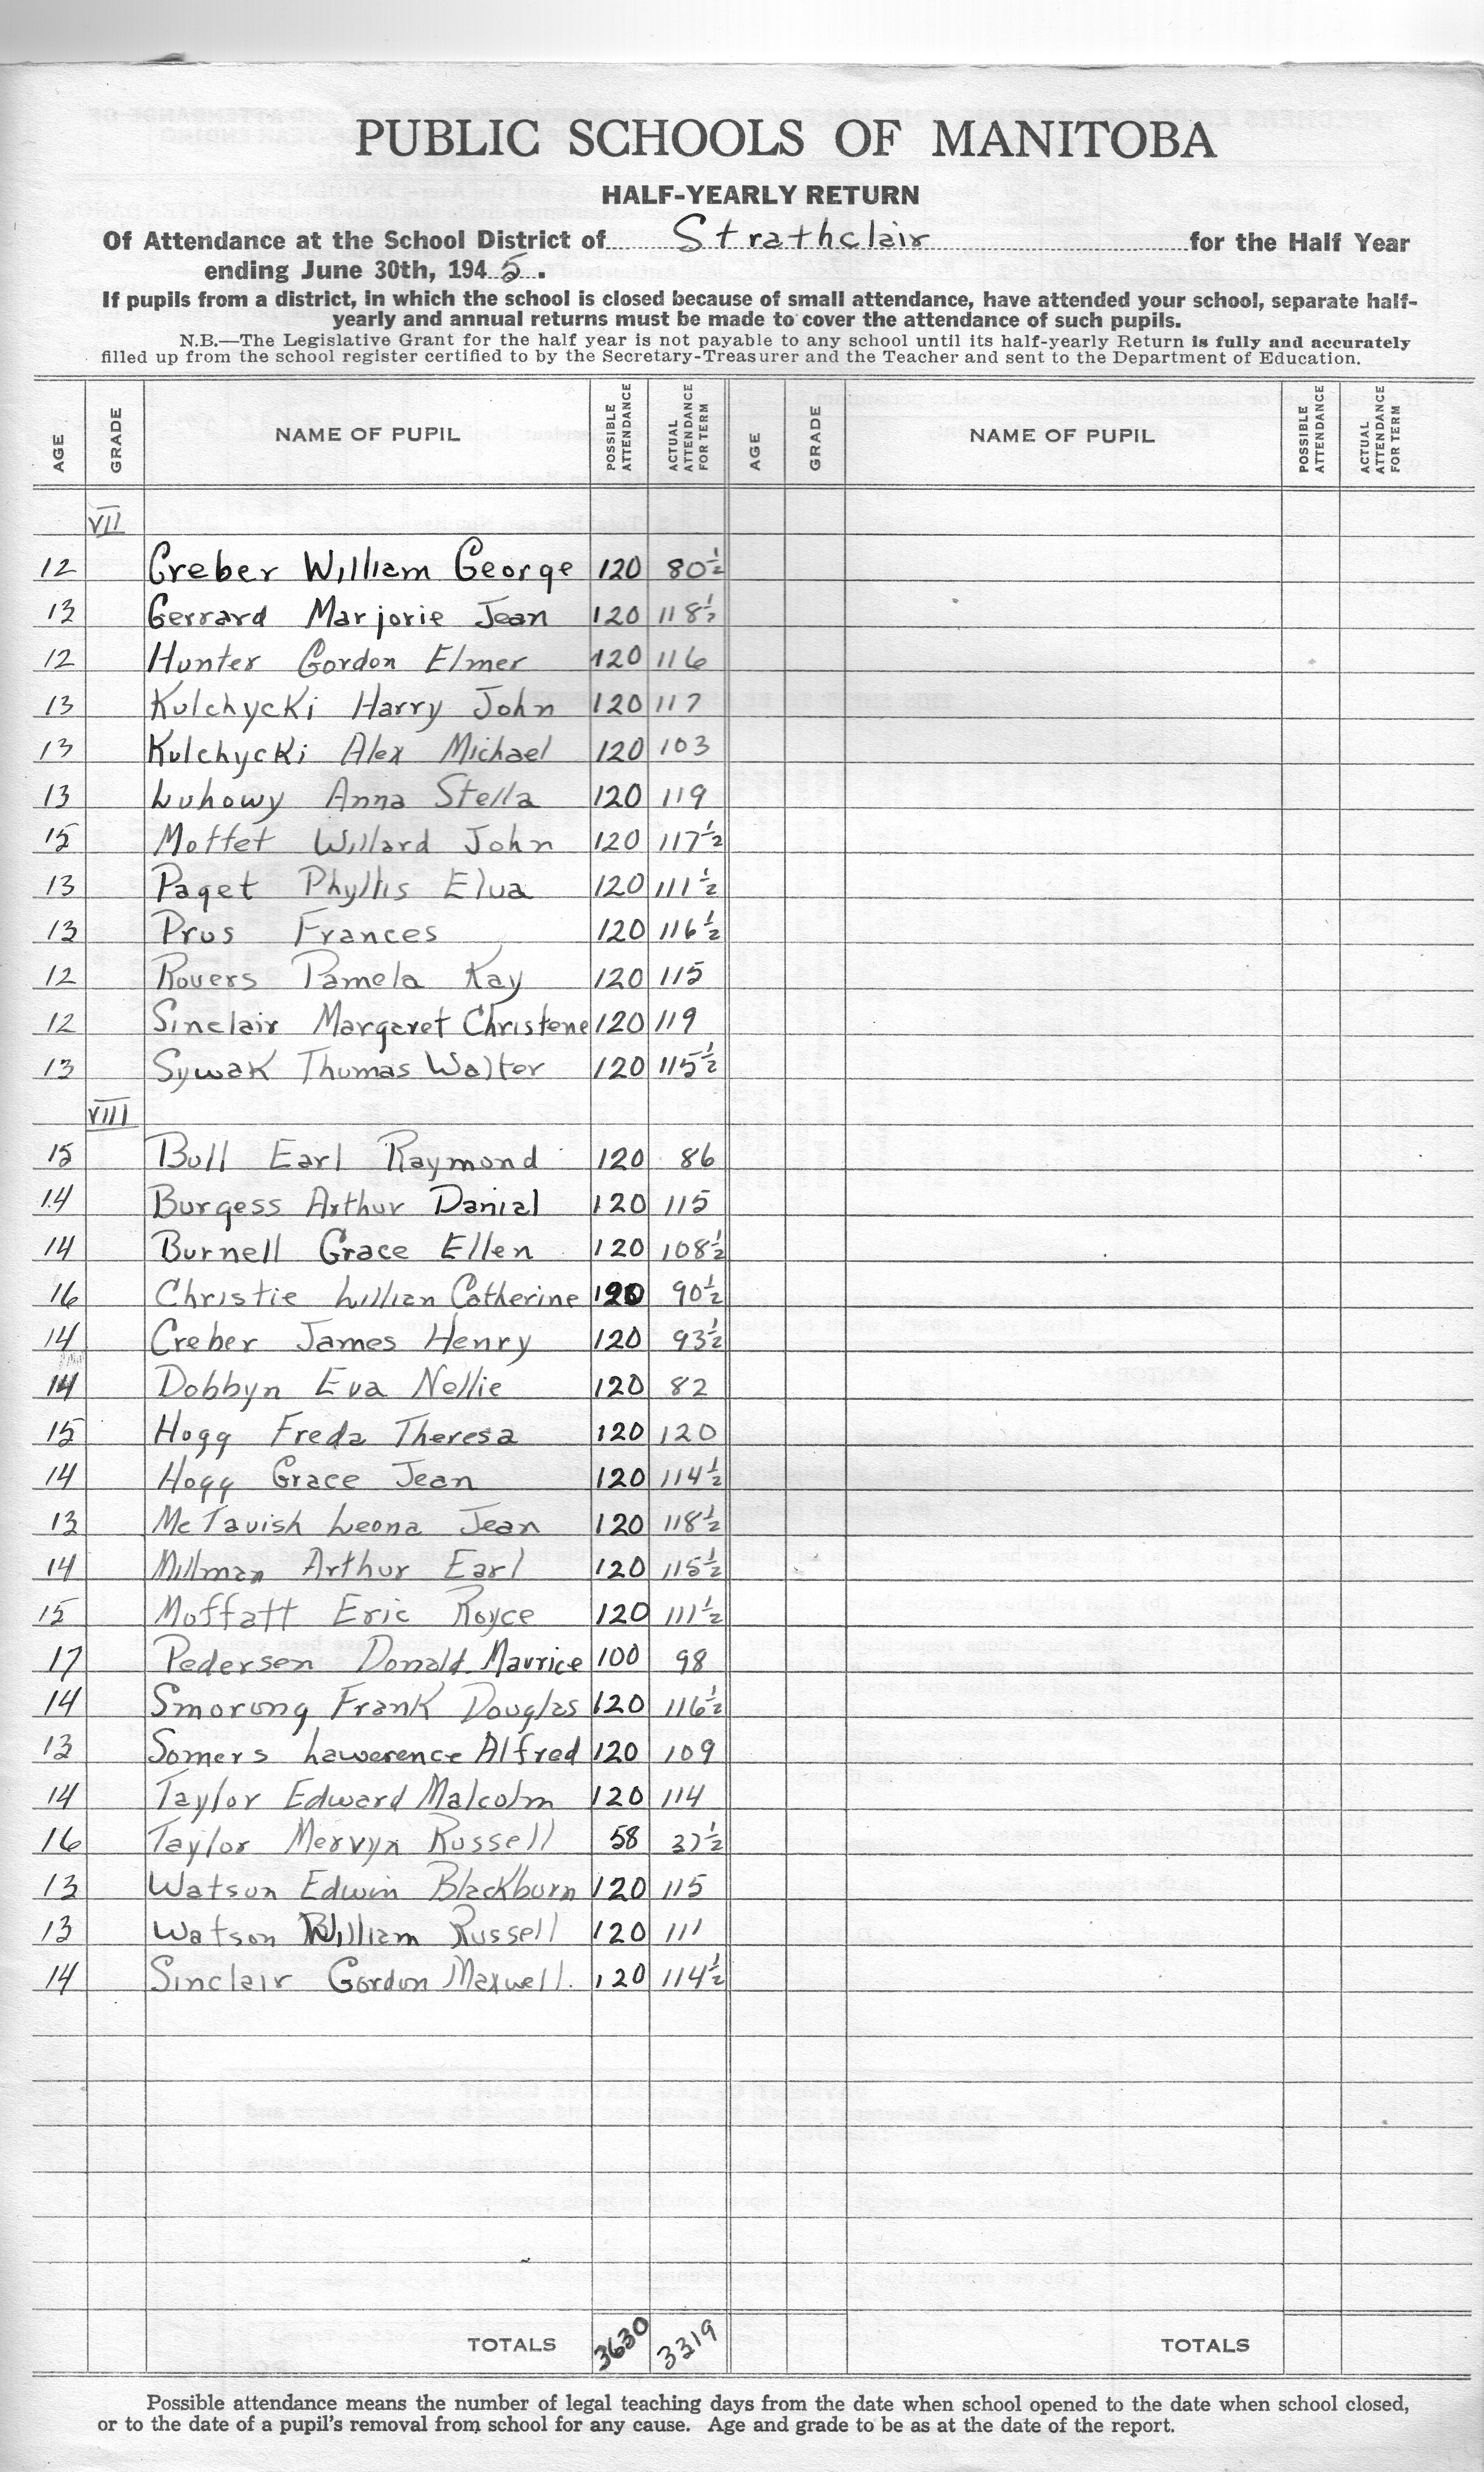 PUBLIC SCHOOLS OF MANITOBA
HALF-YEARLY RETURN
Of Attendance at the School District of Strathclair for the Half Year
ending June 30th, 1945.
If pupils from a district, in which the school is closed because of small attendance, have attended your school, separate half-
yearly and annual returns must be made to cover the attendance of such pupils.
N.B.—The Legislative Grant for the half year is not payable to any school until its half-yearly Return is fully and accurately
filled up from the school register certified to by the Secretary-Treasurer and the Teacher and sent to the Department of Education.
AGE GRADE NAME OF PUPIL POSSIBLE ATTENDANCE ACTUAL ATTENDANCE FOR TERM AGE GRADE NAME OF PUPIL POSSIBLE ATTENDANCE ACTUAL ATTENDANCE FOR TERM
VII
12 Creber William George 120 80½
13 Gerrard Marjorie Jean 120 118½
12 Hunter Gordon Elmer 120 116
13 Kulchycki Harry John 120 117
13 Kulchycki Alex Michael 120 103
13 Luhowy Anna Stella 120 119
15 Moffet Willard John 120 117½
13 Paget Phyllis Elva 120 111½
13 Prus Frances 120 116½
12 Rovers Pamela Kay 120 115
12 Sinclair Margaret Christene 120 119
13 Sywak Thomas Walter 120 115½
VIII
15 Bull Earl Raymond 120 86
14 Burgess Arthur Danial 120 115
14 Burnell Grace Ellen 120 108½
16 Christie Lillian Catherine 120 90½
14 Creber James Henry 120 93½
14 Dobbyn Eva Nellie 120 82
15 Hogg Freda Theresa 120 120
14 Hogg Grace Jean 120 114½
13 McTavish Leona Jean 120 118½
14 Millman Arthur Earl 120 115½
15 Moffatt Eric Royce 120 111½
17 Pedersen Donald Maurice 100 98
14 Smorong Frank Douglas 120 116½
13 Somers Lawerence Alfred 120 109
14 Taylor Edward Malcolm 120 114
16 Taylor Mervyn Russell 58 37½
13 Watson Edwin Blackburn 120 115
13 Watson William Russell 120 111
14 Sinclair Gordon Maxwell. 120 114½
TOTALS 3630 3319 TOTALS
Possible attendance means the number of legal teaching days from the date when school opened to the date when school closed,
or to the date of a pupil's removal from school for any cause. Age and grade to be as at the date of the report.